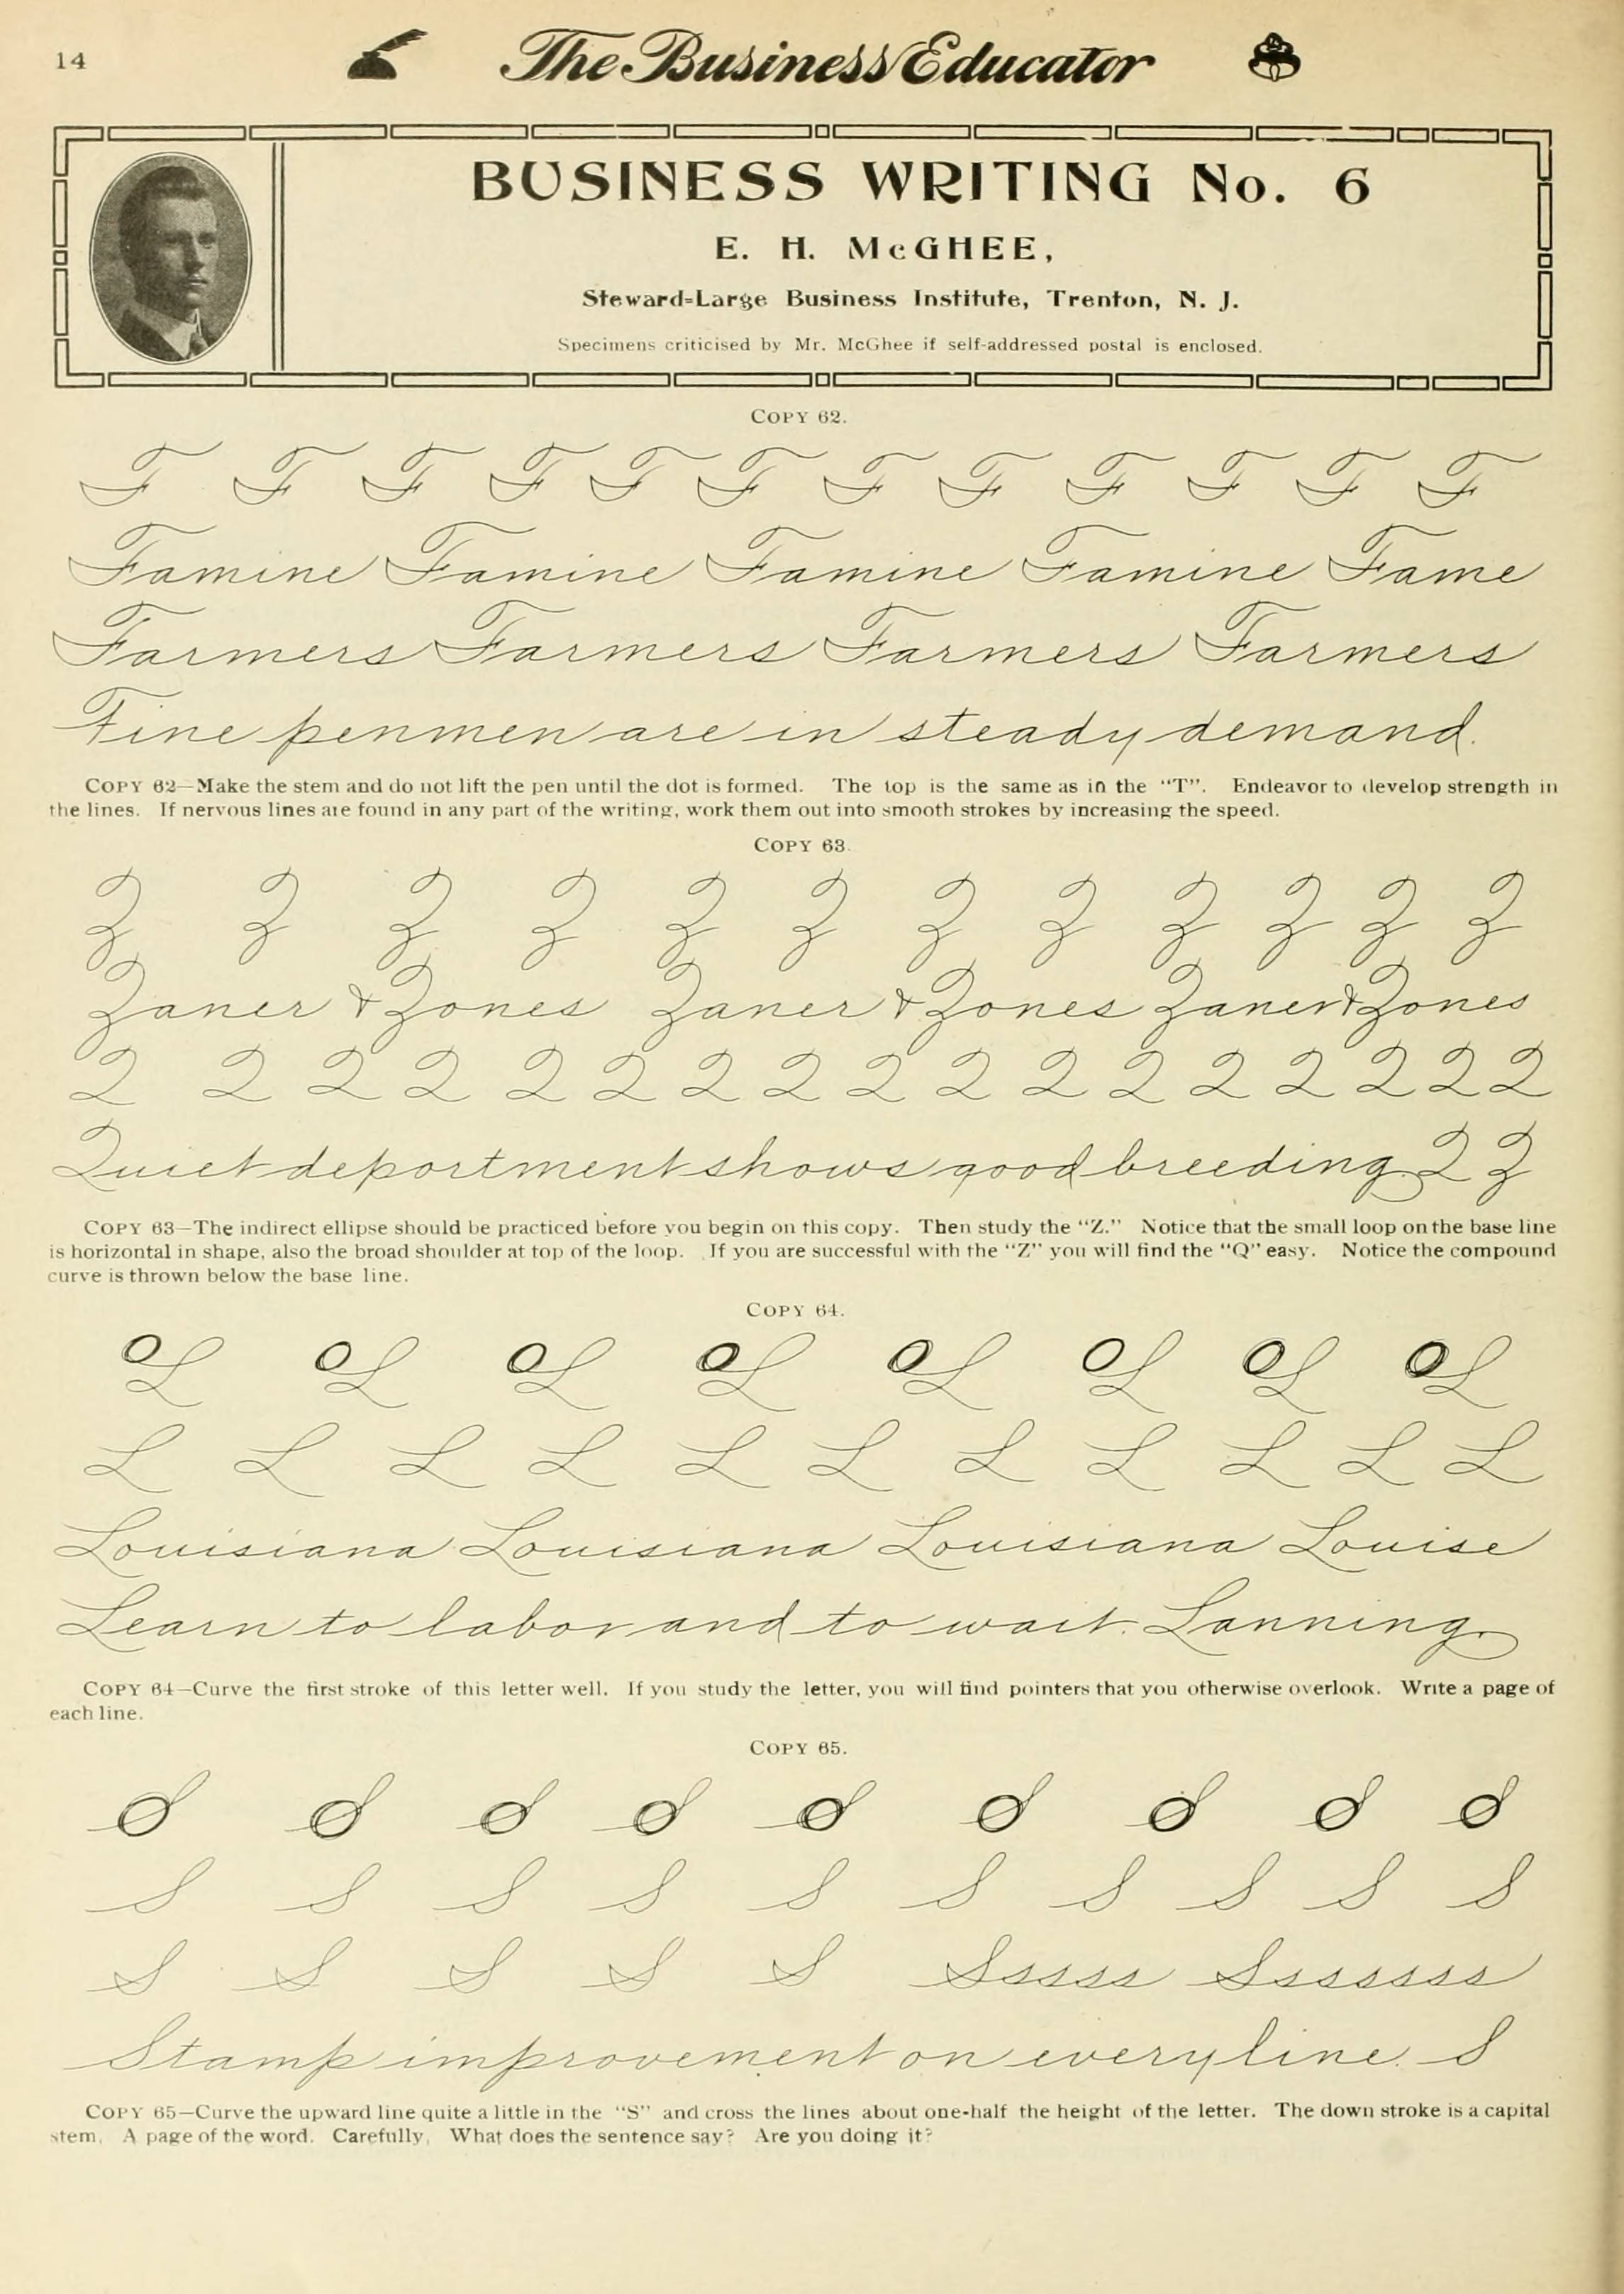 14
The Business Educator
BUSINESS WRITING No. 6
E. H. McGHEE,
Steward=Large Business Institute, Trenton, N. J.
Specimens criticised by Mr. McGhee if self-addressed postal is enclosed.
COPY 62.
F F F F F F F F F F F F
Famine Famine Famine Famine Fame
Farmers Farmers Farmers Farmers
Fine penmen are in steady demand.
COPY 62—Make the stem and do not lift the pen until the dot is formed. The top is the same as in the "T". Endeavor to develop strength in
the lines. If nervous lines are found in any part of the writing, work them out into smooth strokes by increasing the speed.
COPY 63.
Z Z Z Z Z Z Z Z Z Z Z Z
Zaner & Zones Zaner & Zones Zaner & Zones
Q Q Q Q Q Q Q Q Q Q Q Q Q Q Q Q Q
Quiet deportment shows good breeding. Q Z
COPY 63—The indirect ellipse should be practiced before you begin on this copy. Then study the "Z." Notice that the small loop on the base line
is horizontal in shape, also the broad shoulder at top of the loop. If you are successful with the "Z" you will find the "Q" easy. Notice the compound
curve is thrown below the base line.
COPY 64.
L L L L L L L L
L L L L L L L L L L L
Louisiana Louisiana Louisiana Louise
Learn to labor and to wait. Lanning.
COPY 64—Curve the first stroke of this letter well. If you study the letter, you will find pointers that you otherwise overlook. Write a page of
each line.
COPY 65.
S S S S S S S S S
S S S S S S S S S S
S S S S S Ssssss Ssssssss
Stamp improvement on every line. S
COPY 65—Curve the upward line quite a little in the "S" and cross the lines about one-half the height of the letter. The down stroke is a capital
stem. A page of the word. Carefully. What does the sentence say? Are you doing it?